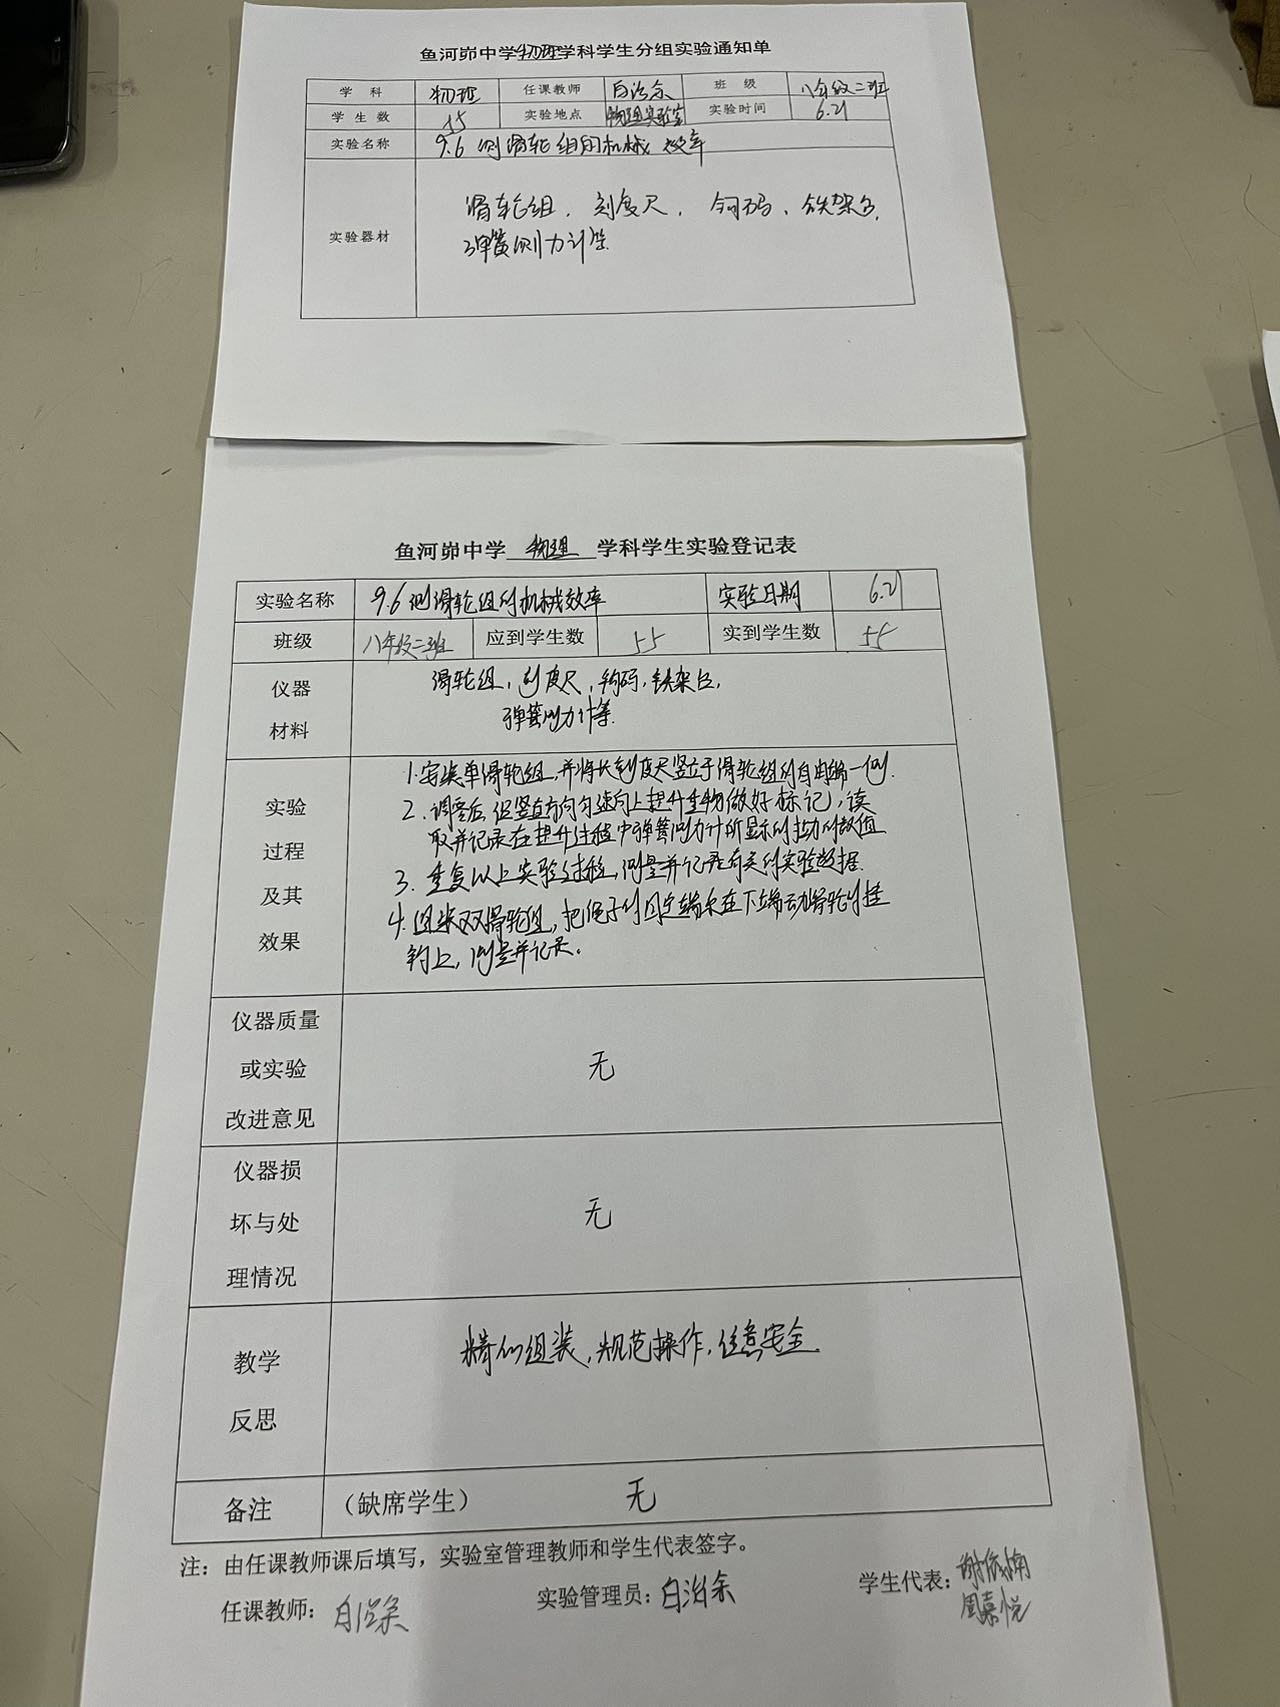 鱼河峁中学物理学科学生分组实验通知单
学 科 物理 任课教师 白治余 班 级 八年级二班
学 生 数 55 实验地点 物理实验室 实验时间 6.21
实验名称 9.6 测滑轮组的机械效率
滑轮组、刻度尺、钩码、铁架台、
实验器材 弹簧测力计等
鱼河峁中学 物理 学科学生实验登记表
实验名称 9.6 测滑轮组的机械效率 实验日期 6.21
班级 八年级二班 应到学生数 55 实到学生数 55
仪器 滑轮组,刻度尺,钩码,铁架台,
材料 弹簧测力计等.
1.安装单滑轮组,并将长刻度尺竖立于滑轮组的自由端一侧.
实验 2.调零后,沿竖直方向匀速向上提升重物做好标记,读
取并记录在提升过程中弹簧测力计所显示的拉力的数值
过程 3.重复以上实验过程,测量并记录有关的实验数据.
及其 4.组装双滑轮组,把绳子的固定端系在下端动滑轮的挂
效果 钩上,测量并记录.
仪器质量
或实验 无
改进意见
仪器损
坏与处 无
理情况
教学 精心组装,规范操作,注意安全.
反思
备注 (缺席学生) 无
注:由任课教师课后填写,实验室管理教师和学生代表签字。
任课教师: 白治余 实验管理员: 白治余 学生代表:
周嘉悦